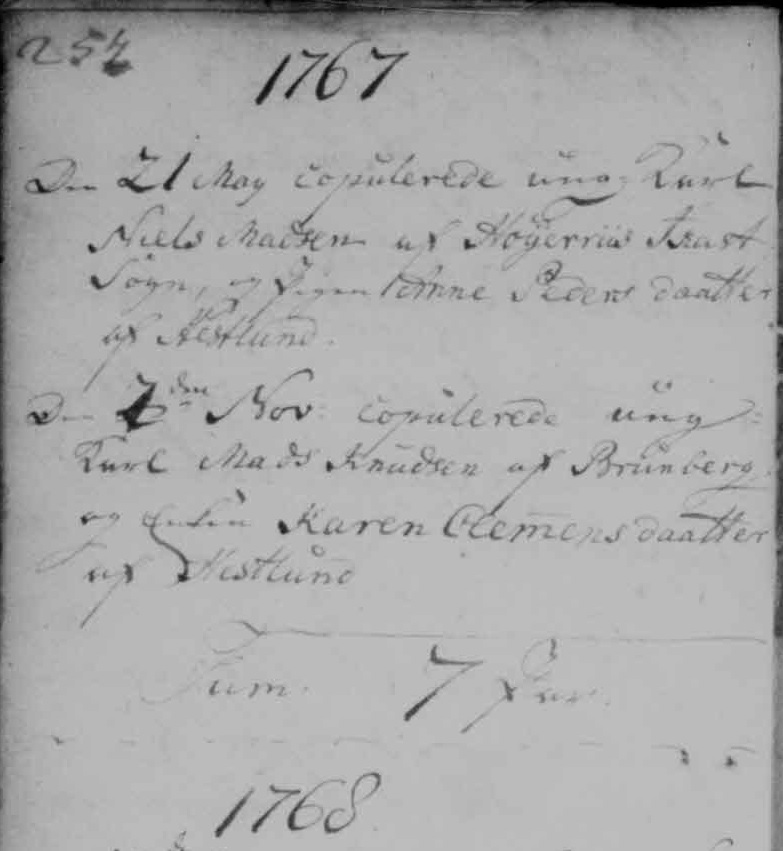 254
1767
Den 21 May copulerede ung Karl
Niels Madsen af Høyerriis Trast
Sogn, og Pigen Anne Peders daatter
af Hestlund.
Den 7den Nov: copulerede ung:
Karl Mads Knudsen af Brunberg
og Enken Karen Clemens daatter
af Hestlund
Sum. 7 Par.
1768